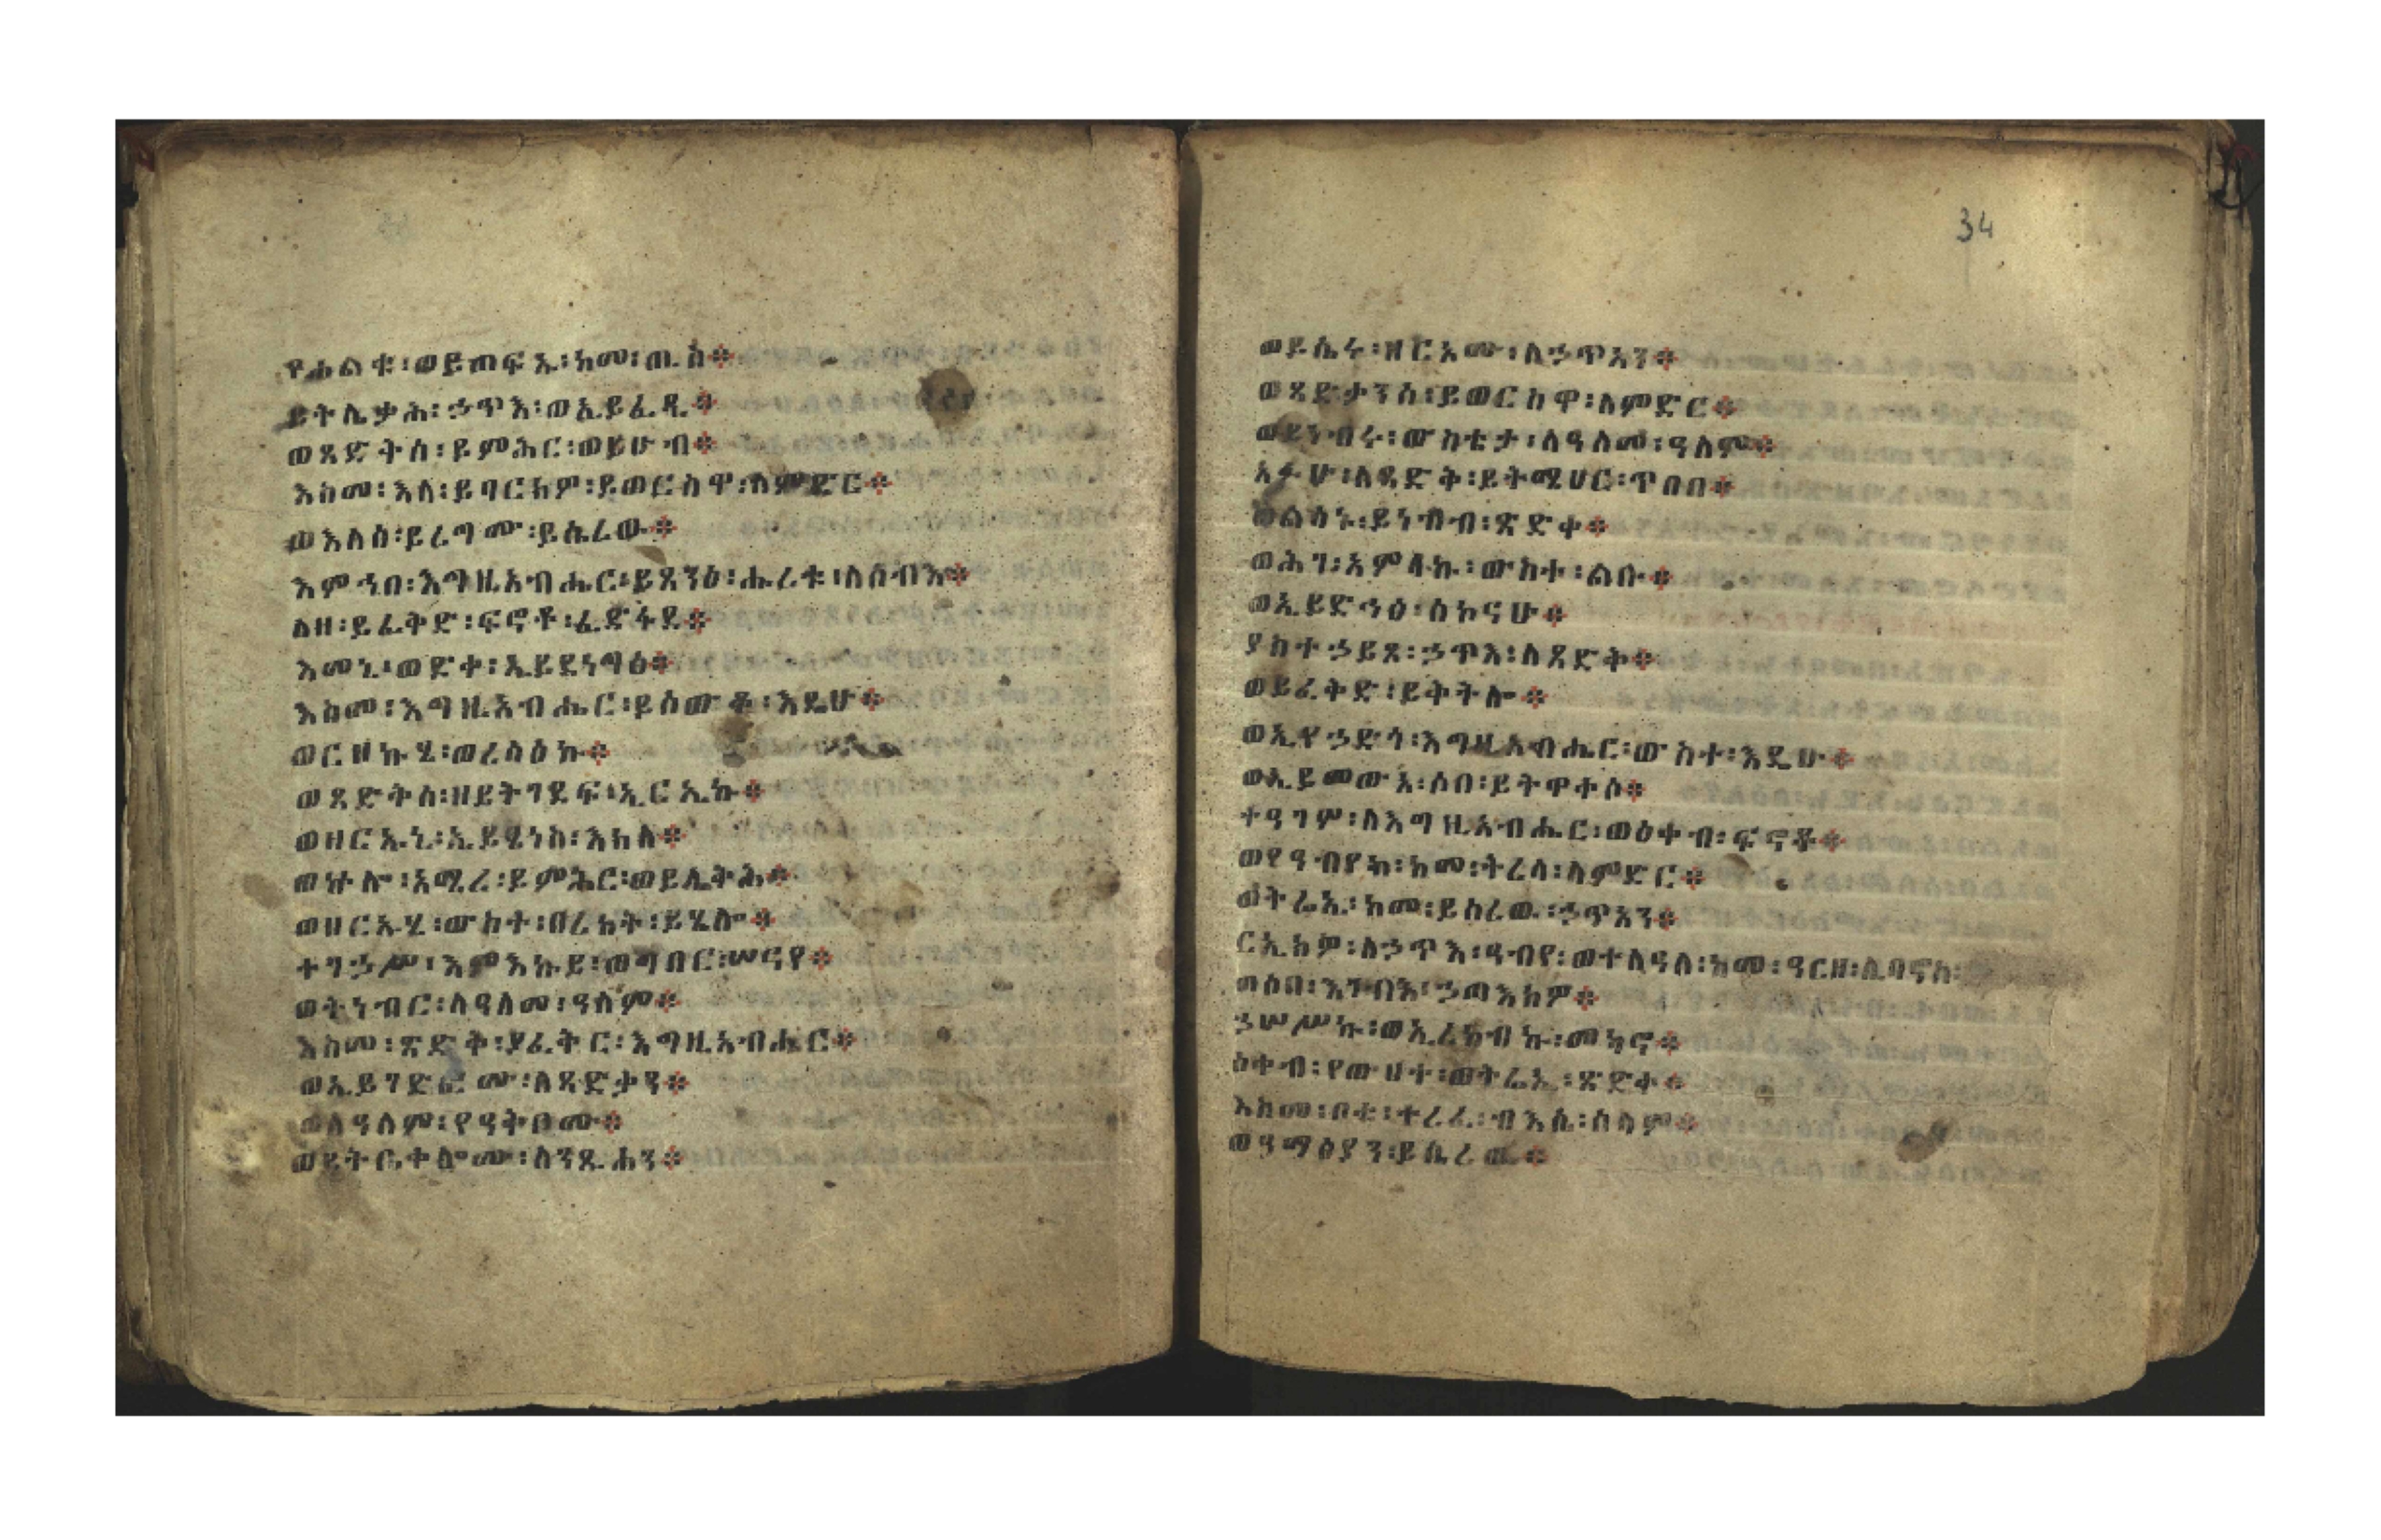 የሐልቁ፡ወይጠፍኡ፡ከመ፡ጢስ፨
ይትሌቃሕ፡ኃጥእ፡ወኢይፈዲ፨
ወጻድቅሰ፡ይምሕር፡ወይሁብ፨
እስመ፡እለ፡ይባርክዎ፡ይወርስዋ፡ለምድር፨
ወእለሰ፡ይረግሙ፡ይሤረው፨
እምኀበ፡እግዚአብሔር፡ይጸንዕ፡ሑረቱ፡ለሰብእ፨
ለዘ፡ይፈቅድ፡ፍኖቶ፡ፈድፋደ፨
እመኒ፡ወድቀ፡ኢይደነግፅ፨
እስመ፡እግዚአብሔር፡ይሰውቆ፡እዴሁ፨
ወርዘኩሂ፡ወረሳዕኩ፨
ወጻድቅሰ፡ዘይትገደፍ፡ኢርኢኩ፨
ወዘርኡኒ፡ኢይፄነስ፡እክለ፨
ወኵሎ፡አሚረ፡ይምሕር፡ወይሌቅሕ፨
ወዘርኡሂ፡ውስተ፡በረከት፡ይሄሉ፨
ተገኃሥ፡እምእኩይ፡ወግበር፡ሠናየ፨
ወትነብር፡ለዓለመ፡ዓለም፨
እስመ፡ጽድቀ፡ያፈቅር፡እግዚአብሔር፨
ወኢይገድፎሙ፡ለጻድቃኑ፨
ወለዓለም፡የዓቅቦሙ፨
ወይትቤቀሎሙ፡ለንጹሐን፨
34
ወይሤሩ፡ዘርኦሙ፡ለኃጥአን፨
ወጻድቃንሰ፡ይወርስዋ፡ለምድር፨
ወይነብሩ፡ውስቴታ፡ለዓለመ፡ዓለም፨
አፉሁ፡ለጻድቅ፡ይትሜሀር፡ጥበበ፨
ወልሳኑ፡ይነብብ፡ጽድቀ፨
ወሕገ፡አምላኩ፡ውስተ፡ልቡ፨
ወኢይድኅፅ፡ሰኰናሁ፨
ያስተኃይጾ፡ኃጥእ፡ለጻድቅ፨
ወይፈቅድ፡ይቅትሎ፨
ወኢየኃድጎ፡እግዚአብሔር፡ውስተ፡እዴሁ፨
ወኢይመውእ፡ሶበ፡ይትዋቀሶ፨
ተዓገሦ፡ለእግዚአብሔር፡ወዕቀብ፡ፍኖቶ፨
ወየዓብየከ፡ከመ፡ትረሳ፡ለምድር፨
ወትሬኢ፡ከመ፡ይሤረዉ፡ኃጥአን፨
ርኢክዎ፡ለኃጥእ፡ዓብየ፡ወተለዓለ፡ከመ፡ዓርዘ፡ሊባኖስ፡
ወሶበ፡እገብእ፡ኃጣእክዎ፨
ኃሠሥኩ፡ወኢረከብኩ፡መካኖ፨
ዕቀብ፡የውሀተ፡ወትሬኢ፡ጽድቀ፨
እስመ፡ቦቱ፡ተረፈ፡ብእሲ፡ሰላም፨
ወዓማፅያን፡ይሤረዉ፨